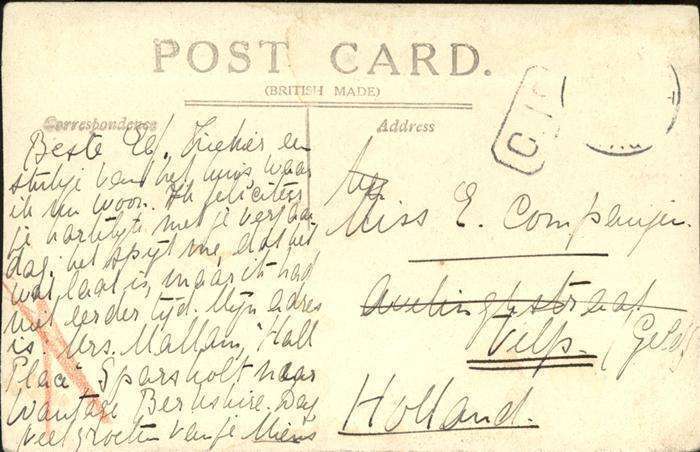 POST CARD.
(BRITISH MADE)
Correspondence
Address
Beste El, Ziehier een
stukje van het huis waar
ik nu woon. Ik feliciteer
je hartelijk met je verjaar
dag, het spijt me dat het
wat laat is, maar ik had
niet eerder tijd. Mijn adres
is: Mrs. Mallam, "Hall
Place" Sparsholt near
Wantage Berkshire. Dag
veel groeten van je Miens
Miss E. Companjen.
Velp. (Geld)
Holland.